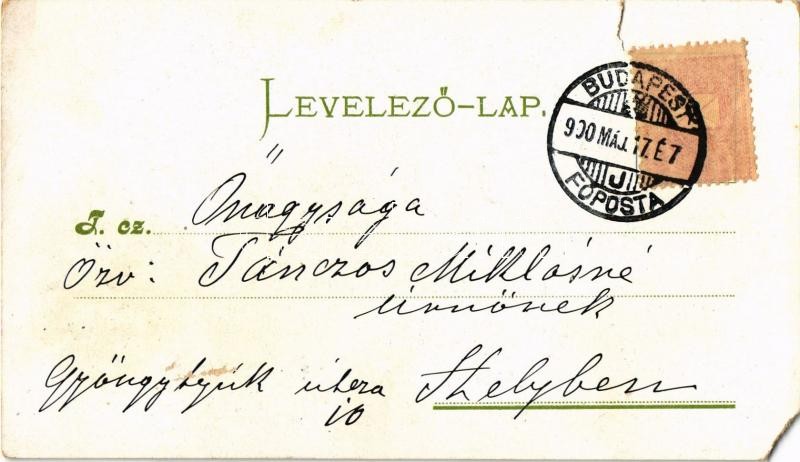 LEVELEZŐ-LAP.
BUDAPEST
900 MÁJ. 17. É7
J
FŐPOSTA
T. cz. Őnagysága
Özv: Tánczos Miklósné
úrnőnek
Gyöngytyúk utcza Helyben
10